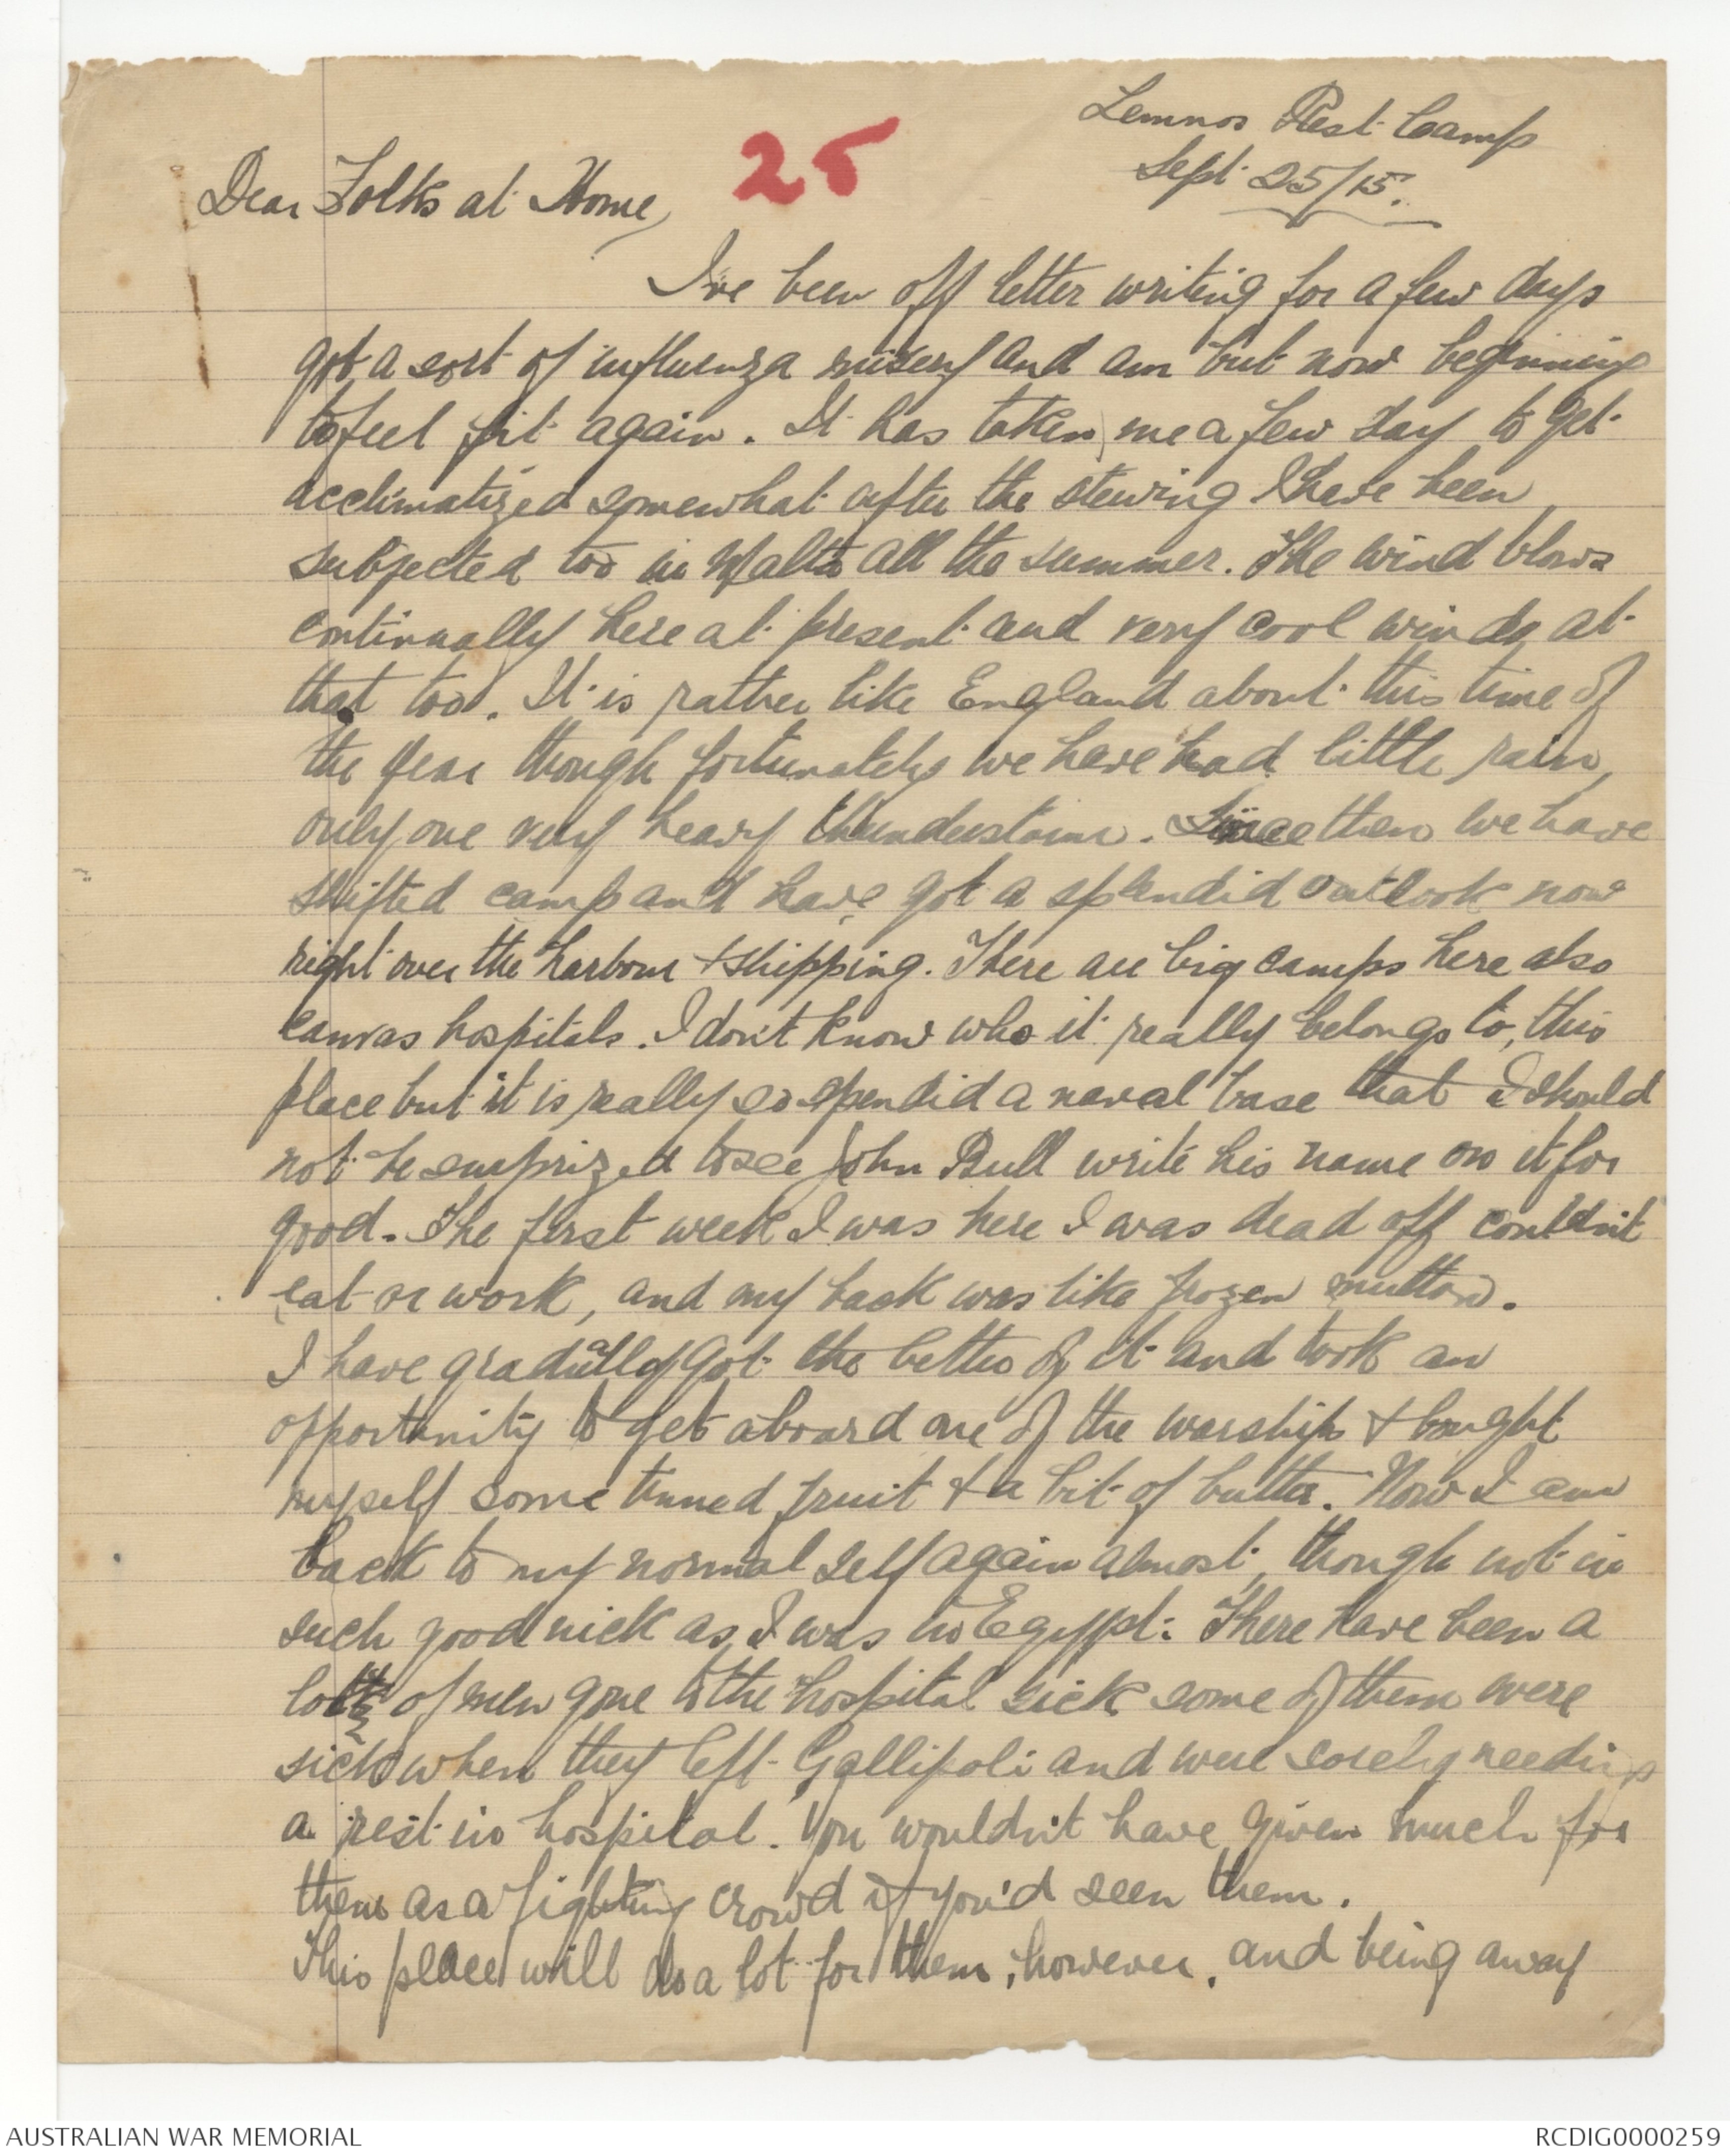 Lemnos Rest Camp
Sept 25/15.
25
Dear Folks at Home,
I've been off letter writing for a few days
got a sort of influenza misery and am but now beginning
to feel fit again. It has taken me a few day to get
acclimatized somewhat after the stewing I have been
subjected too in Malta all the summer. The wind blows
continually here at present and very cool winds at
that too. It is rather like England about this time of
the year though fortunately we have had little rain,
only one very heavy thunderstorm. Since then we have
shifted camp and have got a splendid outlook now
right over the harbour & shipping. There are big camps here also
canvas hospitals. I don't know who it really belongs to, this
place but it is really so spendid a naval base that I should
not be surprized to see John Bull write his name on it for
good. The first week I was here I was dead off couldn't
eat or work, and my back was like frozen mutton.
I have gradually got the better of it and took an
opportunity to get aboard one of the warships & bought
myself some tinned fruit & a bit of butter. Now I am
back to my normal self again almost, though not in
such good nick as I was in Egypt. There have been a
lot of men gone to the hospital sick some of them were
sick when they left Gallipoli and were sorely needing
a rest in hospital. You wouldn't have given much for
them as a fighting crowd if you'd seen them.
This place will do a lot for them, however, and being away
AUSTRALIAN WAR MEMORIAL
RCDIG0000259